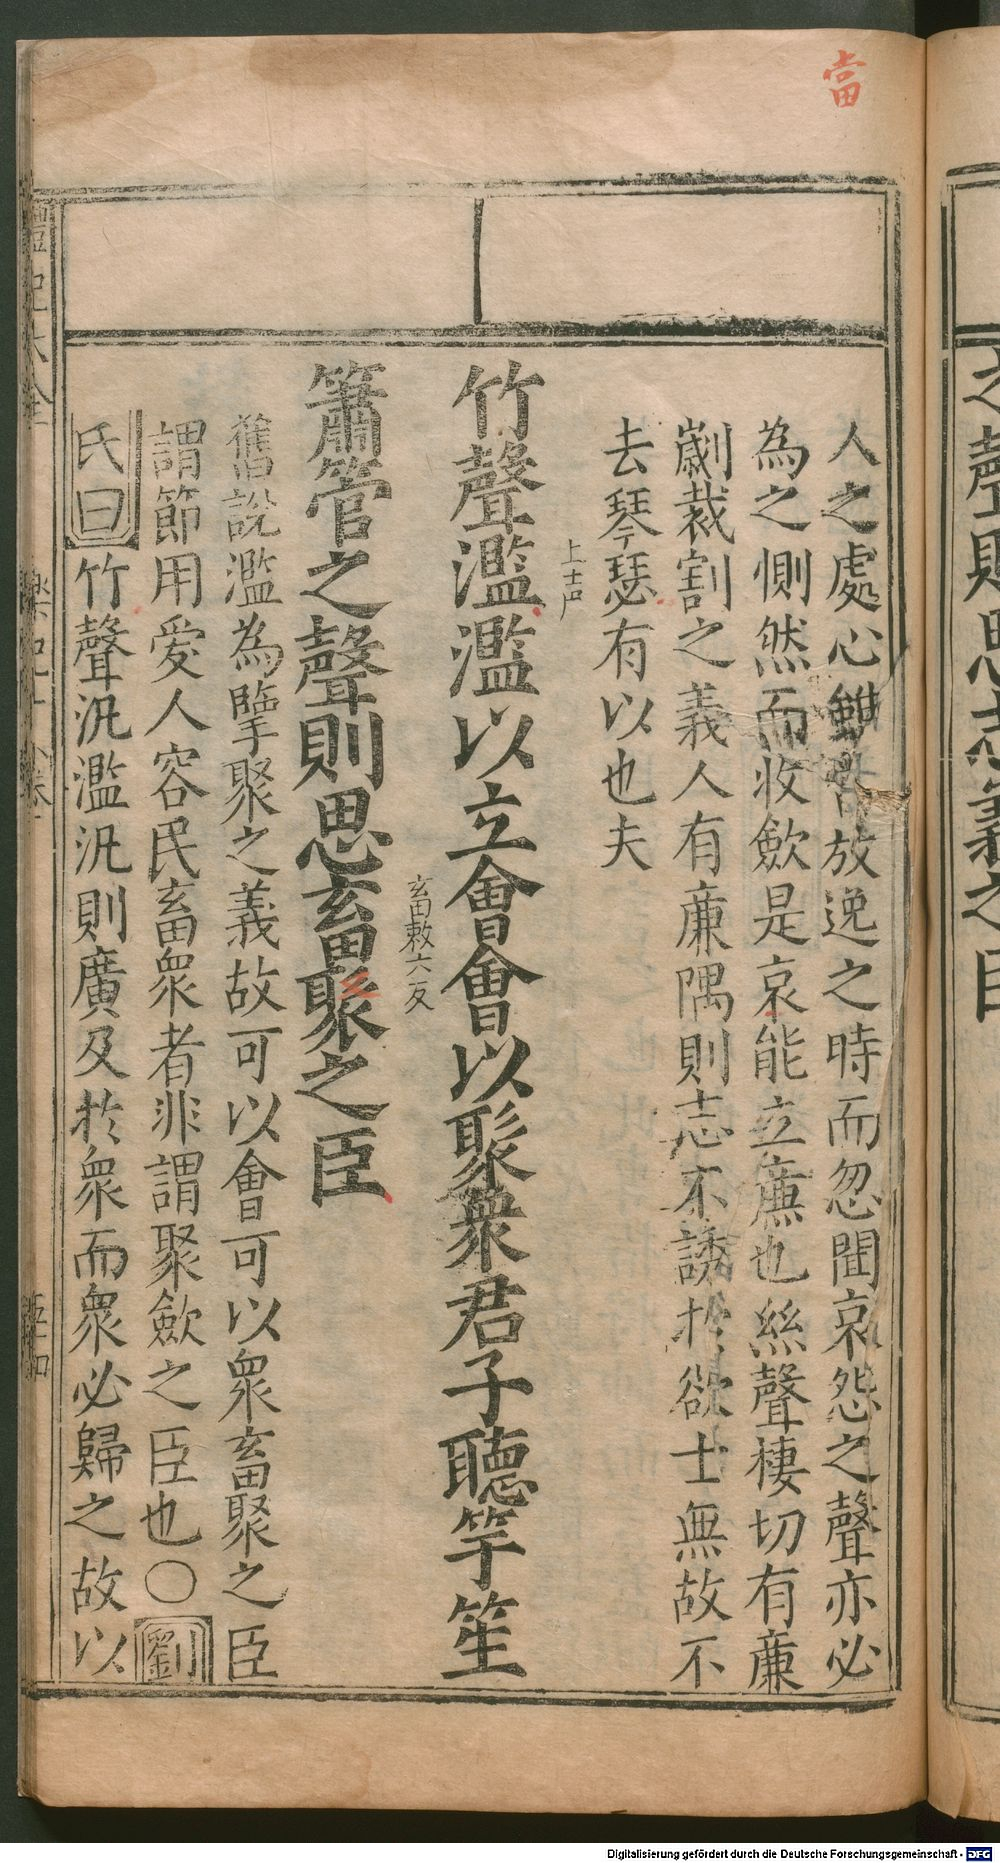 當
人之處心雖當放逸之時而忽聞哀怨之聲亦必
為之惻然而收歛是哀能立廉也絲聲棲切有廉
劌裁割之義人有廉隅則志不誘於欲士無故不
去琴瑟有以也夫
竹聲濫濫以立會會以聚衆君子聽竽笙
上去聲
簫管之聲則思畜聚之臣
畜敕六反
舊說濫為擥聚之義故可以會可以衆畜聚之臣
謂節用愛人容民畜衆者非謂聚歛之臣也〇劉
氏曰竹聲汎濫汎則廣及於衆而衆必歸之故以
禮記大全
之聲則思志義之臣
Digitalisierung gefördert durch die Deutsche Forschungsgemeinschaft - DFG